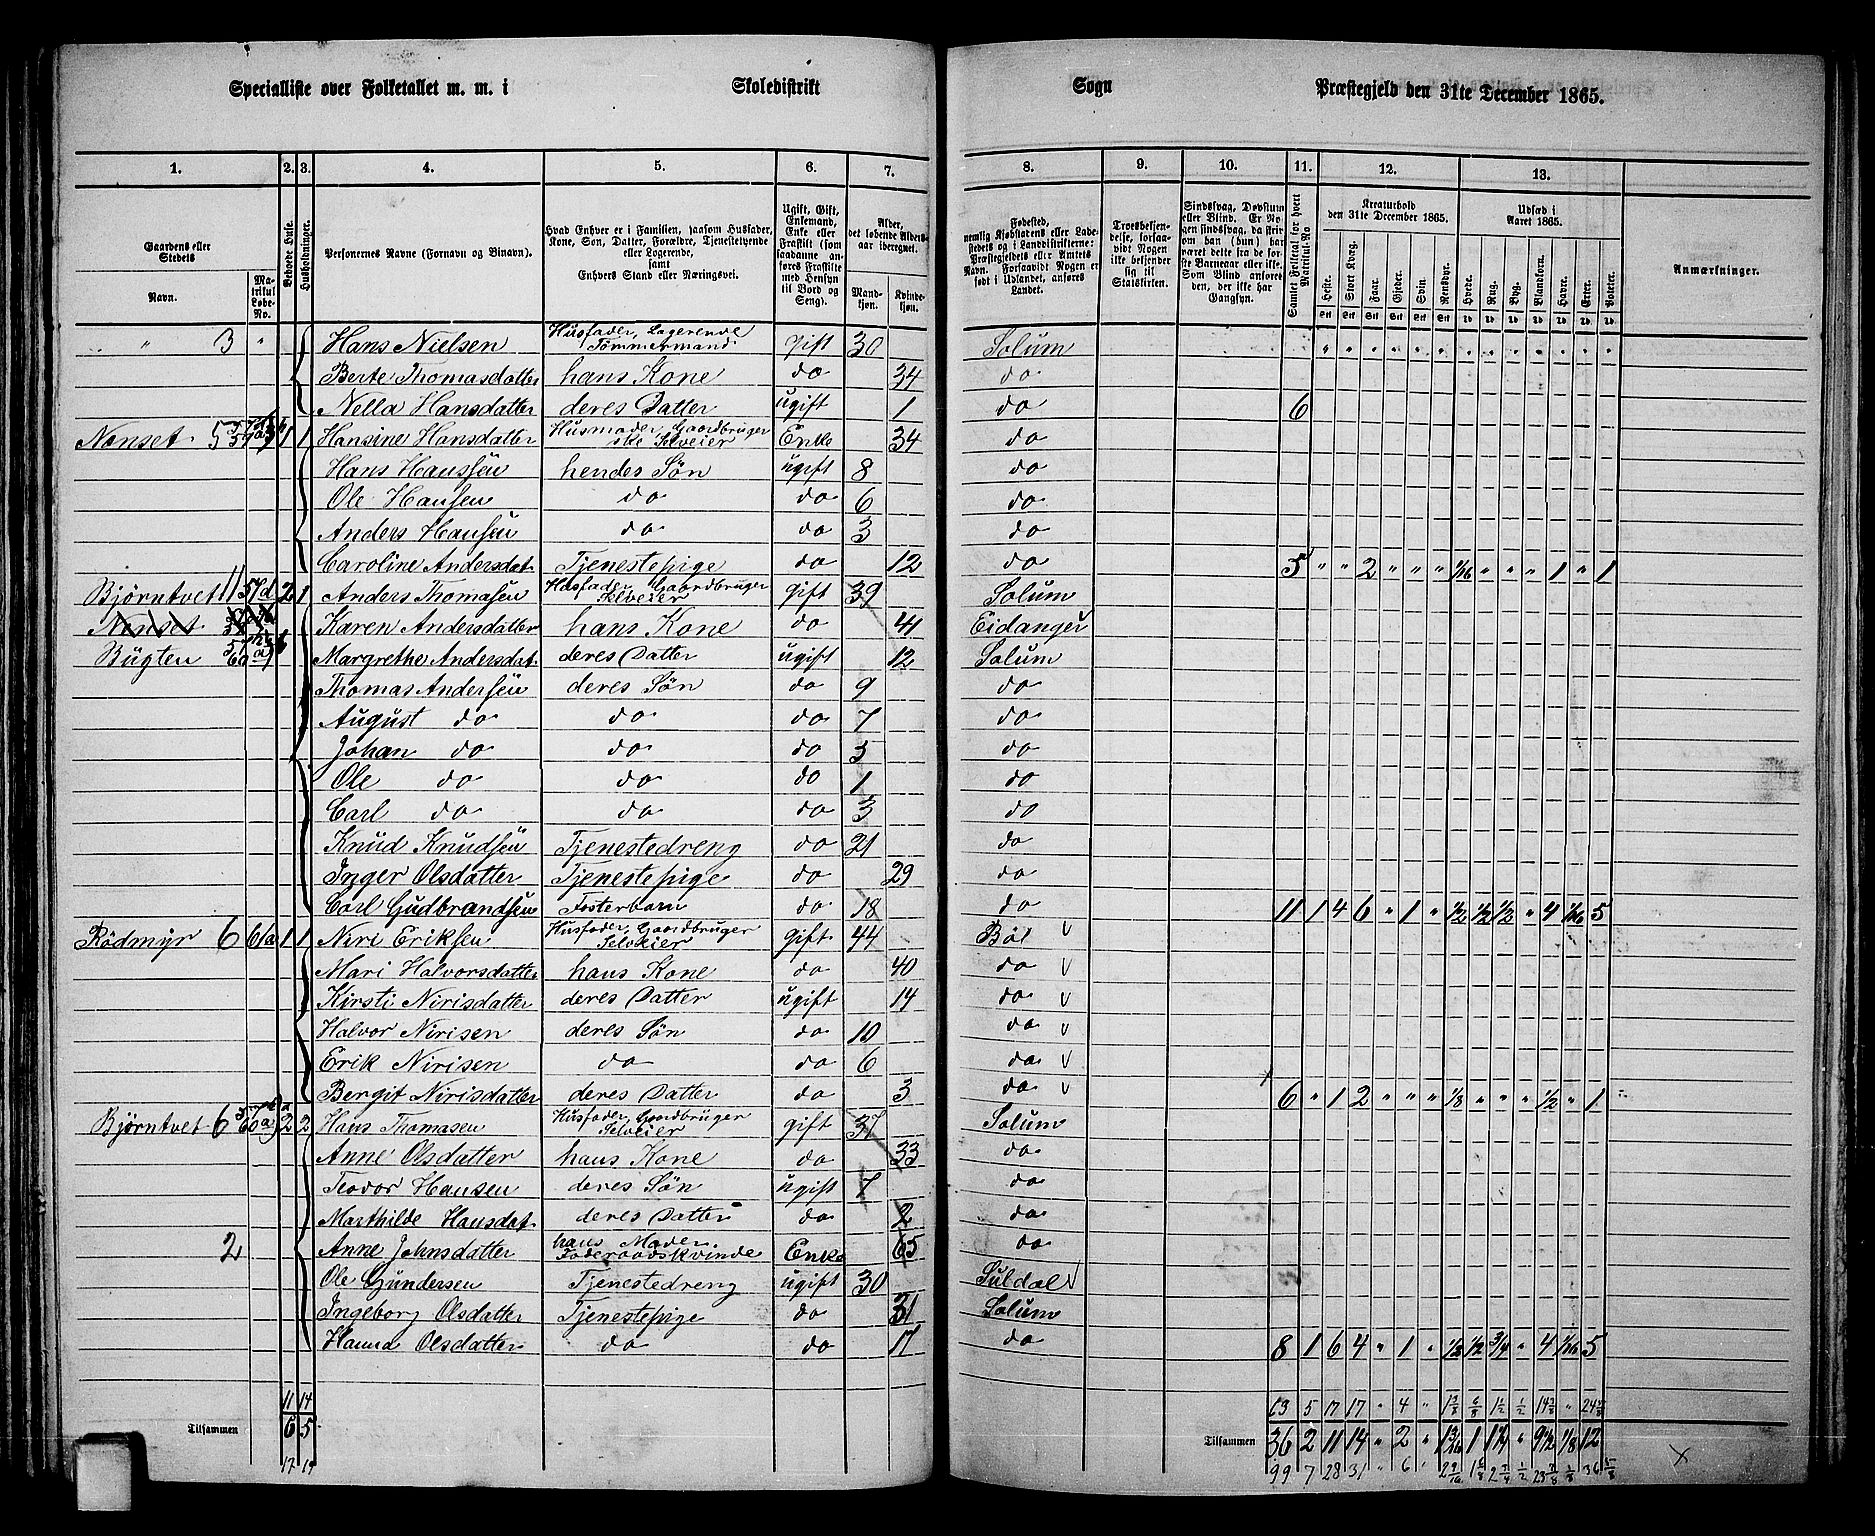 Specialliste over Folketallet m. m. i Skoledistrikt Sogn Præstegjeld den 31te December 1865.
1. 2. 3. 4. 5. 6. 7. 8. 9. 10. 11. 12. 13.
Gaardens eller Stedets
Navn.
Matrikul Løbe-No.
Beboede Huse.
Husholdninger.
Personernes Navne (Fornavn og Binavn).
Hvad Enhver er i Familien, saasom Husfader, Kone, Søn, Datter, Forældre, Tjenestetyende eller Logerende, samt Enhvers Stand eller Næringsvei.
Ugift, Gift, Enkemand, Enke eller Fraskilt (som saadanne anføres Fraskilte med Hensyn til Bord og Seng).
Alder, det løbende Alders-aar iberegnet.
Mandkjøn. Kvindekjøn.
Fødested, nemlig Kjøbstadens eller Ladestedets og i Landdistrikterne: Præstegjeldets eller Amtets Navn. Forsaavidt Nogen er født i Udlandet, anføres Landet.
Troesbekjendelse, forsaavidt Nogen ikke bekjender sig til Statskirken.
Sindssvag, Døvstum eller Blind. Er Nogen sindssvag, da distriktet om han (hun) har været dette fra de første Barneaar eller ikke. Som Blind anføres den, der ikke har Gangsyn.
Samlet Folketal for hvert Matrikul-No.
Kreaturhold den 31te December 1865.
Heste. Stort Kvæg. Faar. Gjeder. Svin. Rensdyr.
Udsæd i Aaret 1865.
Hvede. Rug. Byg. Blandkorn. Havre. Erter. Poteter.
Anmærkninger.
" 3 " Hans Nielsen Husfader, Logerende Tømmermand gift 30 Solum
Berte Thomasdatter hans Kone do 34 do
Nella Hansdatter deres Datter ugift 1 do 6
Nenset 5 1 1 Hansine Hansdatter Husmoder, Gaardbrugerske Selveier Enke 34 do
Hans Hanssen hendes Søn ugift 8 do
Ole Hansen do do 6 do
Anders Hansen do do 3 do
Caroline Andersdat. Tjenestepige do 12 do 5 " " 2 " " " 1/16 " " " 1 " 1
Bjørntvet 11 57d 2 1 Anders Thomasen Husfader, Gaardbruger Selveier gift 39 Solum
Nenset Karen Andersdatter hans Kone do 41 Eidanger
Bugten Margrethe Andersdat. deres Datter ugift 12 Solum
Thomas Andersen deres Søn do 9 do
August do do do 7 do
Johan do do do 5 do
Ole do do do 1 do
Carl do do do 3 do
Knud Knudsen Tjenestedreng do 21 do
Inger Olsdatter Tjenestepige do 29 do
Carl Gudbrandsen Fosterbarn do 18 do 11 1 4 6 " 1 " 1/2 1/2 1/2 " 4 1/16 5
Rødmyr 6 61a 1 1 Niri Eriksen Husfader, Gaardbruger Selveier gift 44 Bøl v
Mari Halvorsdatter hans Kone do 40 do v
Kirsti Nirisdatter deres Datter ugift 14 do v
Halvor Nirisen deres Søn do 10 do v
Erik Nirisen do do 6 do v
Bergit Nirisdatter deres Datter do 3 do v 6 " 1 2 " " " 1/8 " " " 1/2 " 1
Bjørntvet 6 2 2 Hans Thomasen Husfader, Gaardbruger Selveier gift 37 Solum
Anne Olsdatter hans Kone do 33 do
Teodor Hansen deres Søn ugift 7 do
Marthilde Hansdat. deres Datter do 2 do
2 Anne Johnsdatter hans Moder Føderaadskvinde Enke 65 do
Ole Gundersen Tjenestedreng ugift 30 Suldal v
Ingeborg Olsdatter Tjenestepige do 31 Solum
Hanna Olsdatter do do 17 do 8 1 6 4 " 1 " 1/3 1/2 3/4 " 4 1/16 5
11 14 63 5 17 17 " 4 "
Tilsammen 6 5 Tilsammen 36 2 11 14 " 2 " 1 3/16 1 1 3/4 " 9 1/2 1/8 12
17 19 99 7 28 31 " 6 "